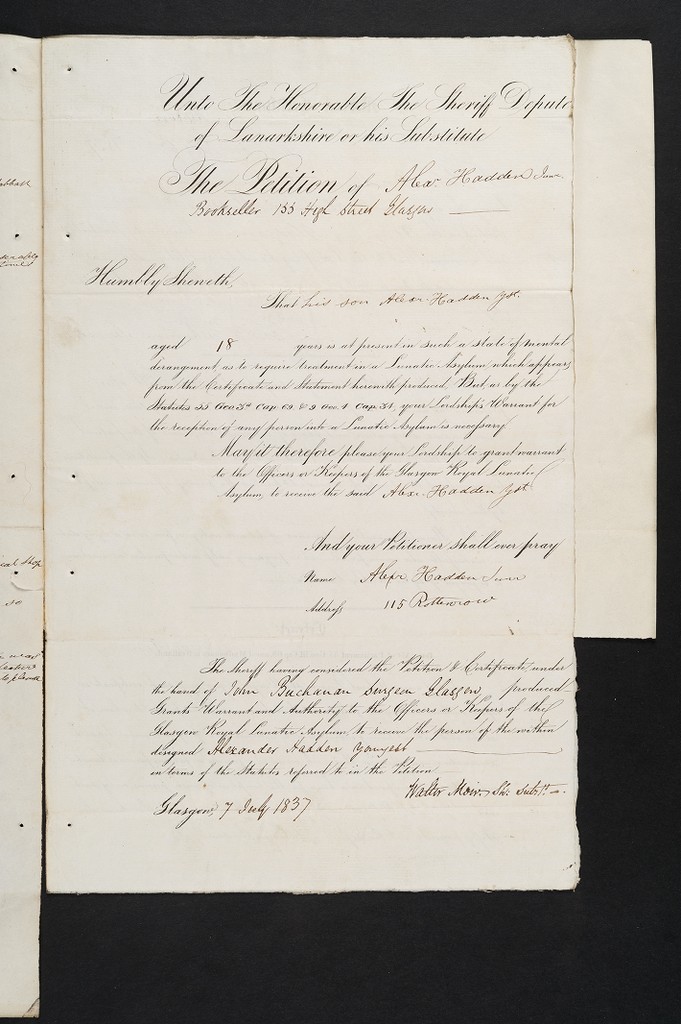 Unto The Honorable The Sheriff Depute
of Lanarkshire or his Substitute
The Petition of Alexr. Hadden Junr.
Bookseller 133 High Street Glasgow
Humbly Sheweth,
That his son Alexr. Hadden Ygst.
aged 18 years is at present in such a state of mental
derangement as to require treatment in a Lunatic Asylum which appears
from the Certificate and Statement herewith produced But as by the
Statutes 55 Geo 3d Cap. 69 & 9 Geo. 4 Cap. 34, your Lordship's Warrant for
the reception of any person into a Lunatic Asylum is necessary
May it therefore please your Lordship to grant warrant
to the Officers or Keepers of the Glasgow Royal Lunatic
Asylum, to receive the said Alexr. Hadden Ygst.
And your Petitioner shall ever pray
Name Alexr. Hadden Junr
Address 115 Rottenrow
The Sheriff having considered the Petition & Certificate, under
the hand of John Buchanan Surgeon Glasgow, produced
Grants Warrant and Authority to the Officers or Keepers of the
Glasgow Royal Lunatic Asylum, to receive the person of the within
designed Alexander Hadden Youngest
in terms of the Statutes referred to in the Petition
Walter Moir. Sh: Subst.
Glasgow, 7 July 1837